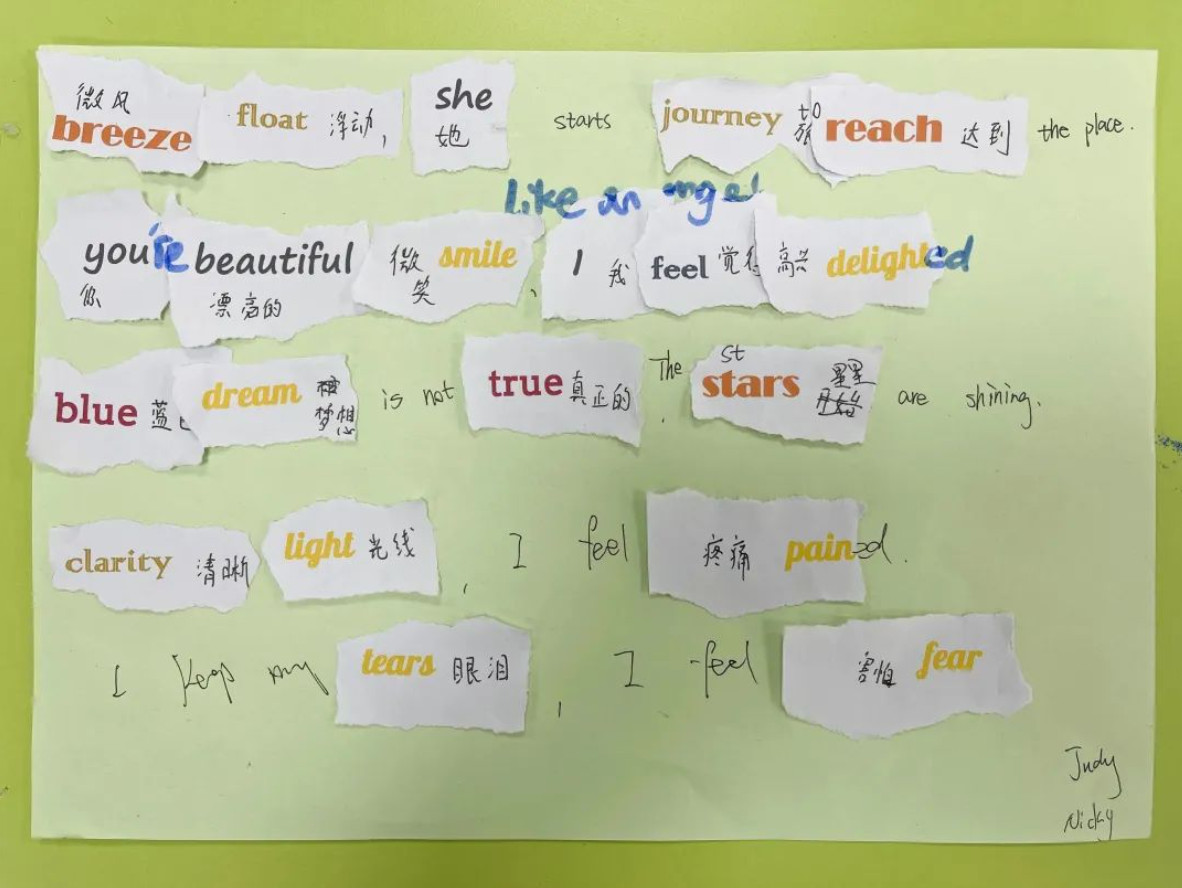 微风 breeze float 浮动, she 她 starts journey reach 达到 the place.
like an angel
you're 你 beautiful 漂亮的 微笑 smile, I 我 feel 觉得 高兴 delighted
blue 蓝 dream 梦想 is not true 真正的. The st stars 星星 are shining.
clarity 清晰 light 光线, I feel 疼痛 pained.
I keep my tears 眼泪, I feel 害怕 fear
Judy
Nicky